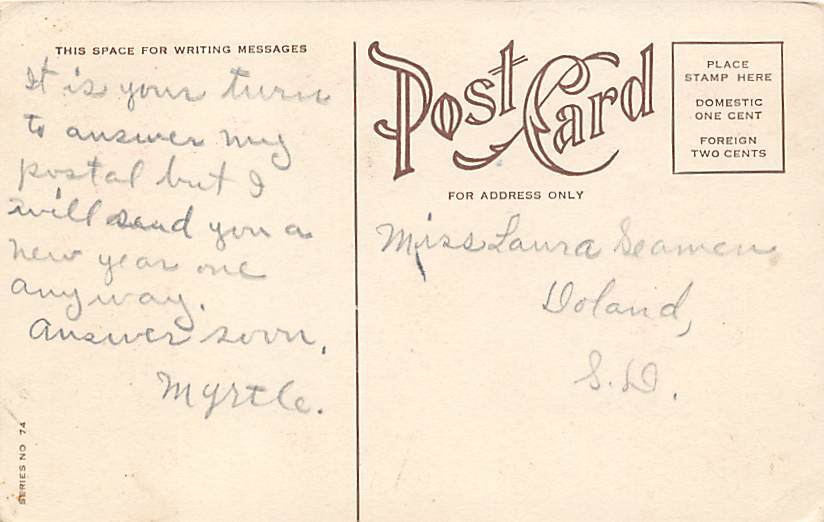 THIS SPACE FOR WRITING MESSAGES
It is your turn
to answer my
postal but I
will send you a
new year one
anyway.
Answer soon,
Myrtle.
SERIES NO 74
Post Card
PLACE
STAMP HERE
DOMESTIC
ONE CENT
FOREIGN
TWO CENTS
FOR ADDRESS ONLY
Miss Laura Seamen
Doland,
S.D.